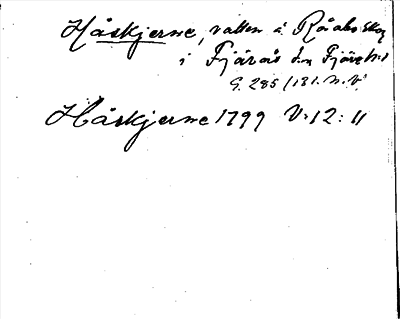 Håskjerne, vatten å Råabo skog
i Fjärås sn Fjäre hd
G. 285 / 131. N. V.
Håskjerne 1799 V:12:11